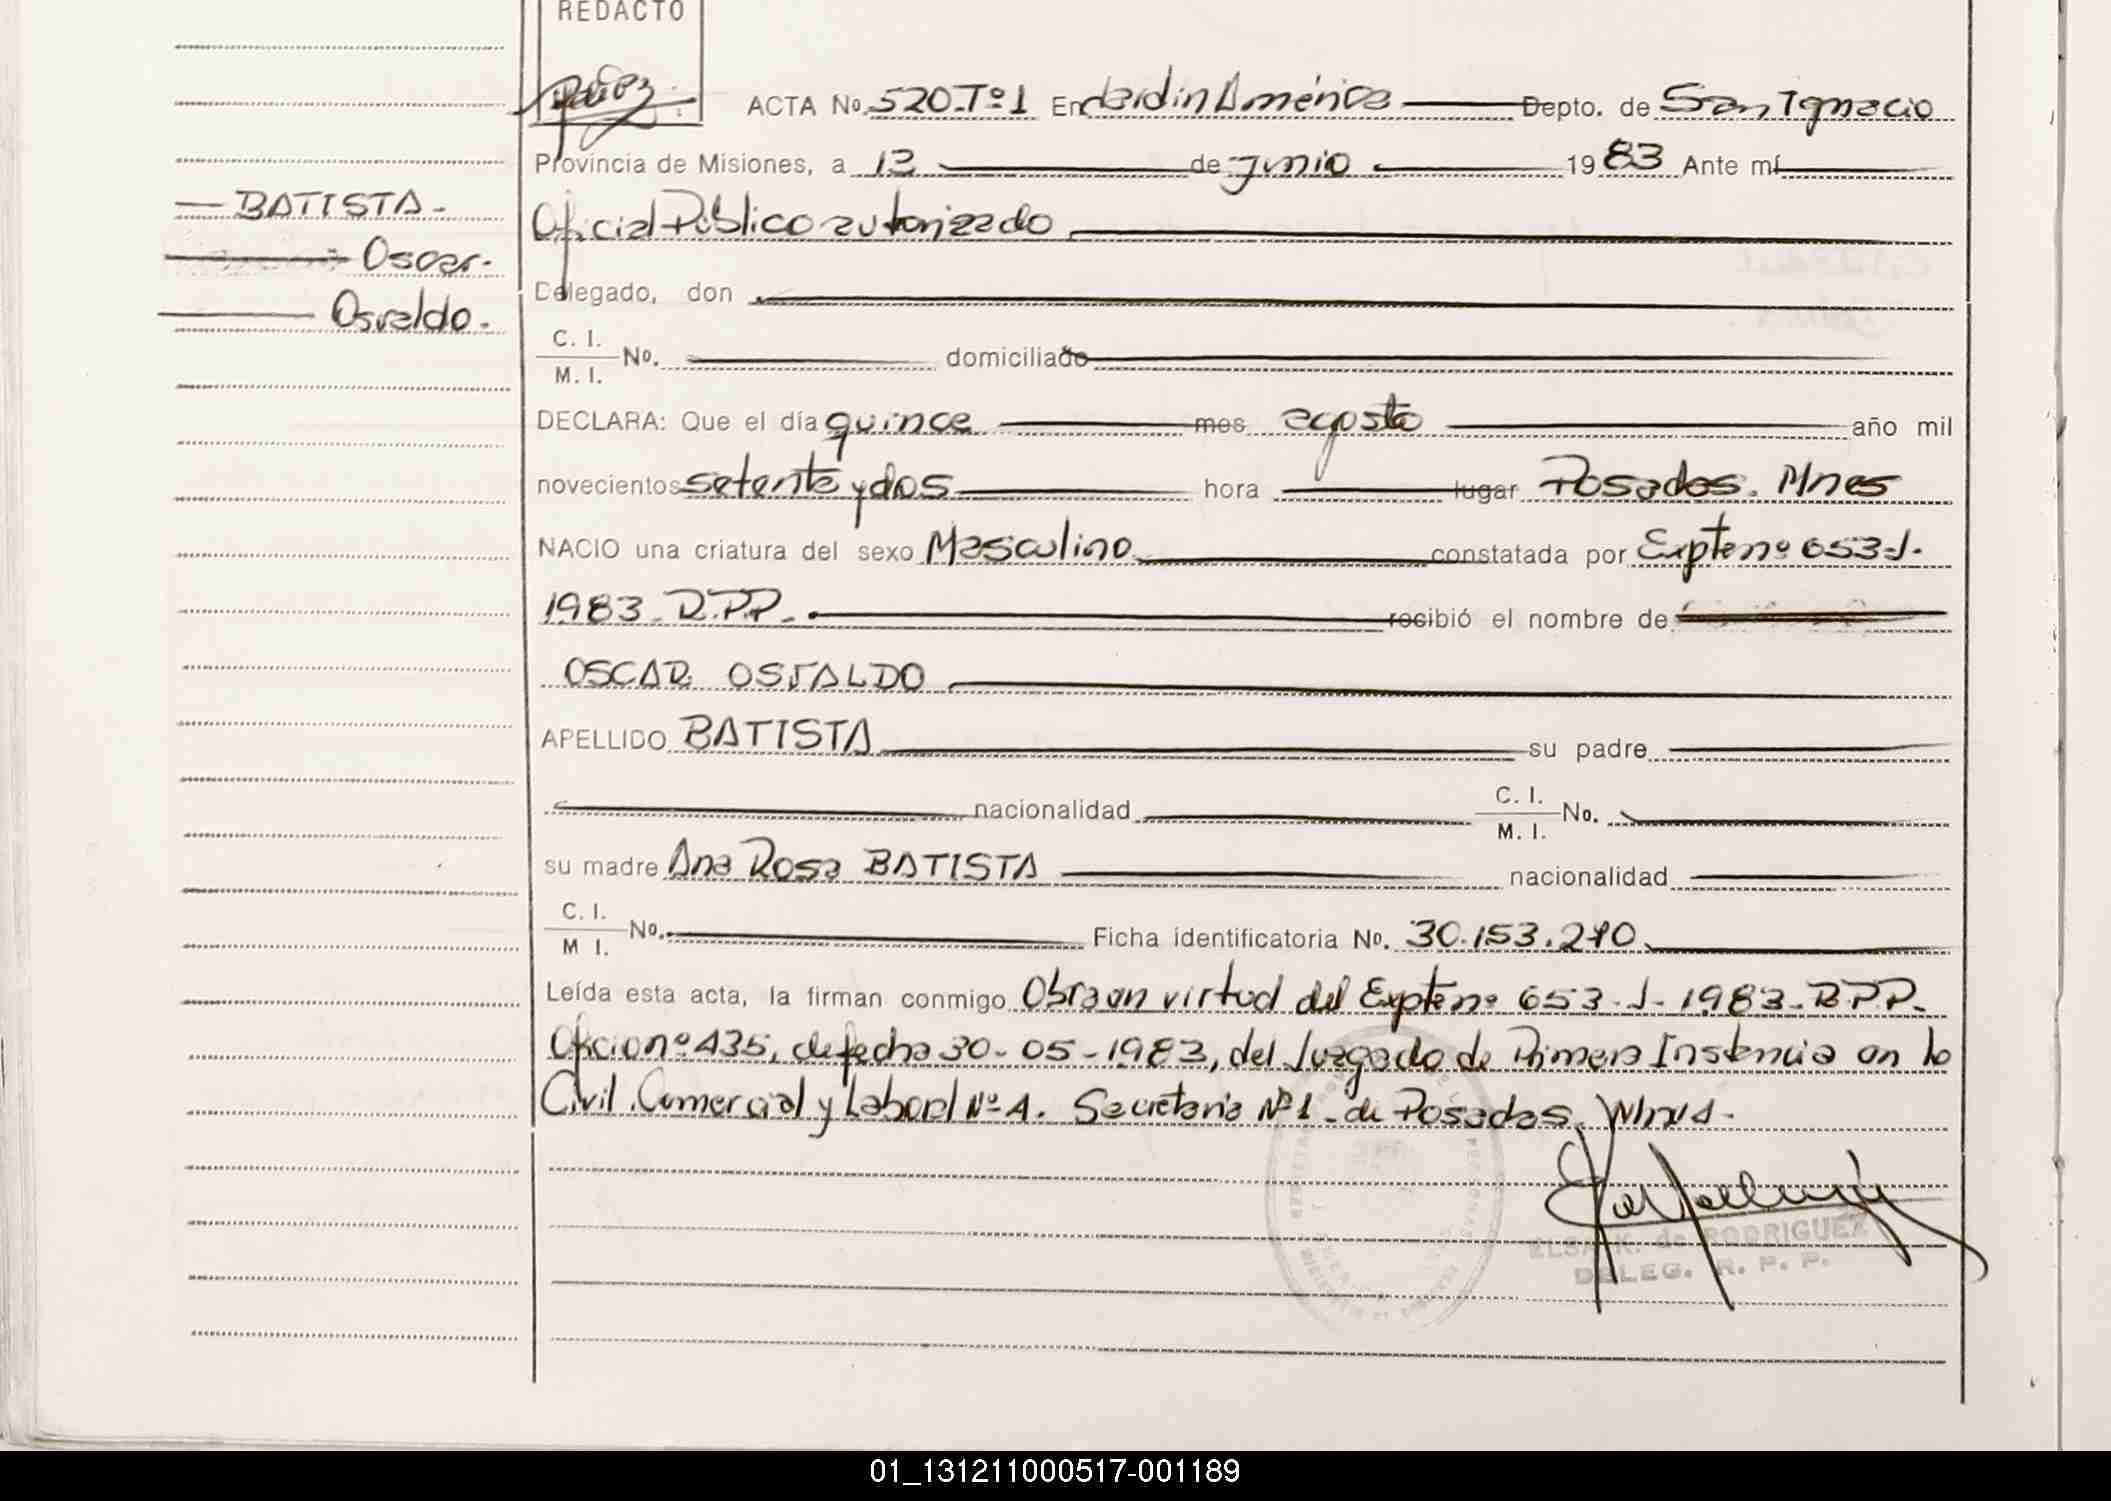 REDACTO
ACTA No. 520-Tº1 En Jardin América Depto. de San Ignacio
Provincia de Misiones, a 13 de junio 1983 Ante mí
BATISTA-
Oficial Público autorizado
Oscar-
Delegado, don
Osvaldo-
C. I.
M. I. No. domiciliado
DECLARA: Que el día quince mes agosto año mil
novecientos setenta y dos hora lugar Posadas. Mnes
NACIO una criatura del sexo Masculino constatada por Expte nº 653-J-
1983-R.P.P.- recibió el nombre de
OSCAR OSVALDO
APELLIDO BATISTA su padre
nacionalidad C. I.
M. I. No.
su madre Ana Rosa BATISTA nacionalidad
C. I.
M I. No. Ficha identificatoria No. 30.153.210
Leída esta acta, la firman conmigo Obra en virtud del Expte nº 653-J-1983-R.P.P.
Oficio nº 435, de fecha 30-05-1983, del Juzgado de Primera Instancia en lo
Civil, Comercial y Laboral Nº 4. Secretaria Nº 1 - de Posadas,
ELSA K. de RODRIGUEZ
DELEG. R. P. P.
01_131211000517-001189